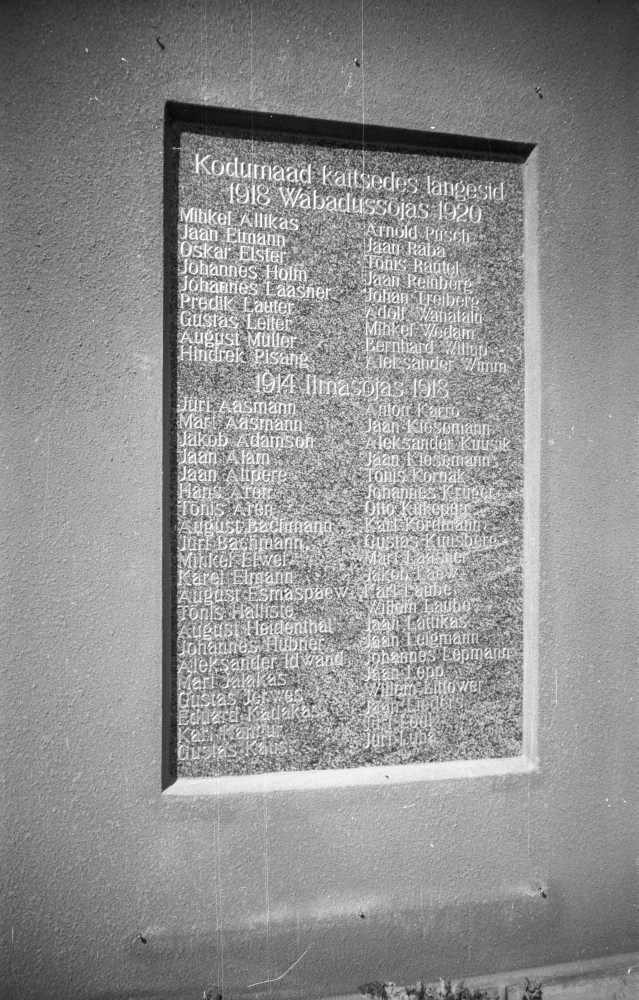 Kodumaad kaitsedes langesid
1918 Wabadussõjas 1920
Mihkel Allikas
Jaan Eimann
Oskar Elster
Johannes Holm
Johannes Laasner
Predik Lauter
Gustas Leiter
August Müller
Hindrek Pisang
Arnold Pusch
Jaan Raba
Tõnis Rautel
Jaan Reinberg
Johan Treiberg
Adolf
Mihkel Wedam
Bernhard
Aleksander Wimm
1914 Ilmasõjas 1918
Jüri Aasmann
Mart Aasmann
Jakob Adamson
Jaan Alam
Jaan Altpere
Hans Aren
Tõnis Aren
August Bachmann
Jüri Bachmann
Mihkel Elwer
Karel Eimann
August Esmaspäew
Tõnis Halliste
August Heidenthal
Johannes Hübner
Aleksander Idwand
Mart Jalakas
Gustas
Eduard Kadakas
Karl Kangur
Gustas
Anton Karro
Jaan Kiosemann
Aleksander Kuusik
Jaan Kiosemann
Tõnis Kornak
Johannes Krüger
Otto
Karl Kordmann
Gustas Kuusberg
Mart Laasner
Jakob
Karl Laube
Willem Laube
Jaan Lattikas
Jaan Leigmann
Johannes Lepmann
Jaan Lepp
Willem
Jaan
Jüri
Jüri